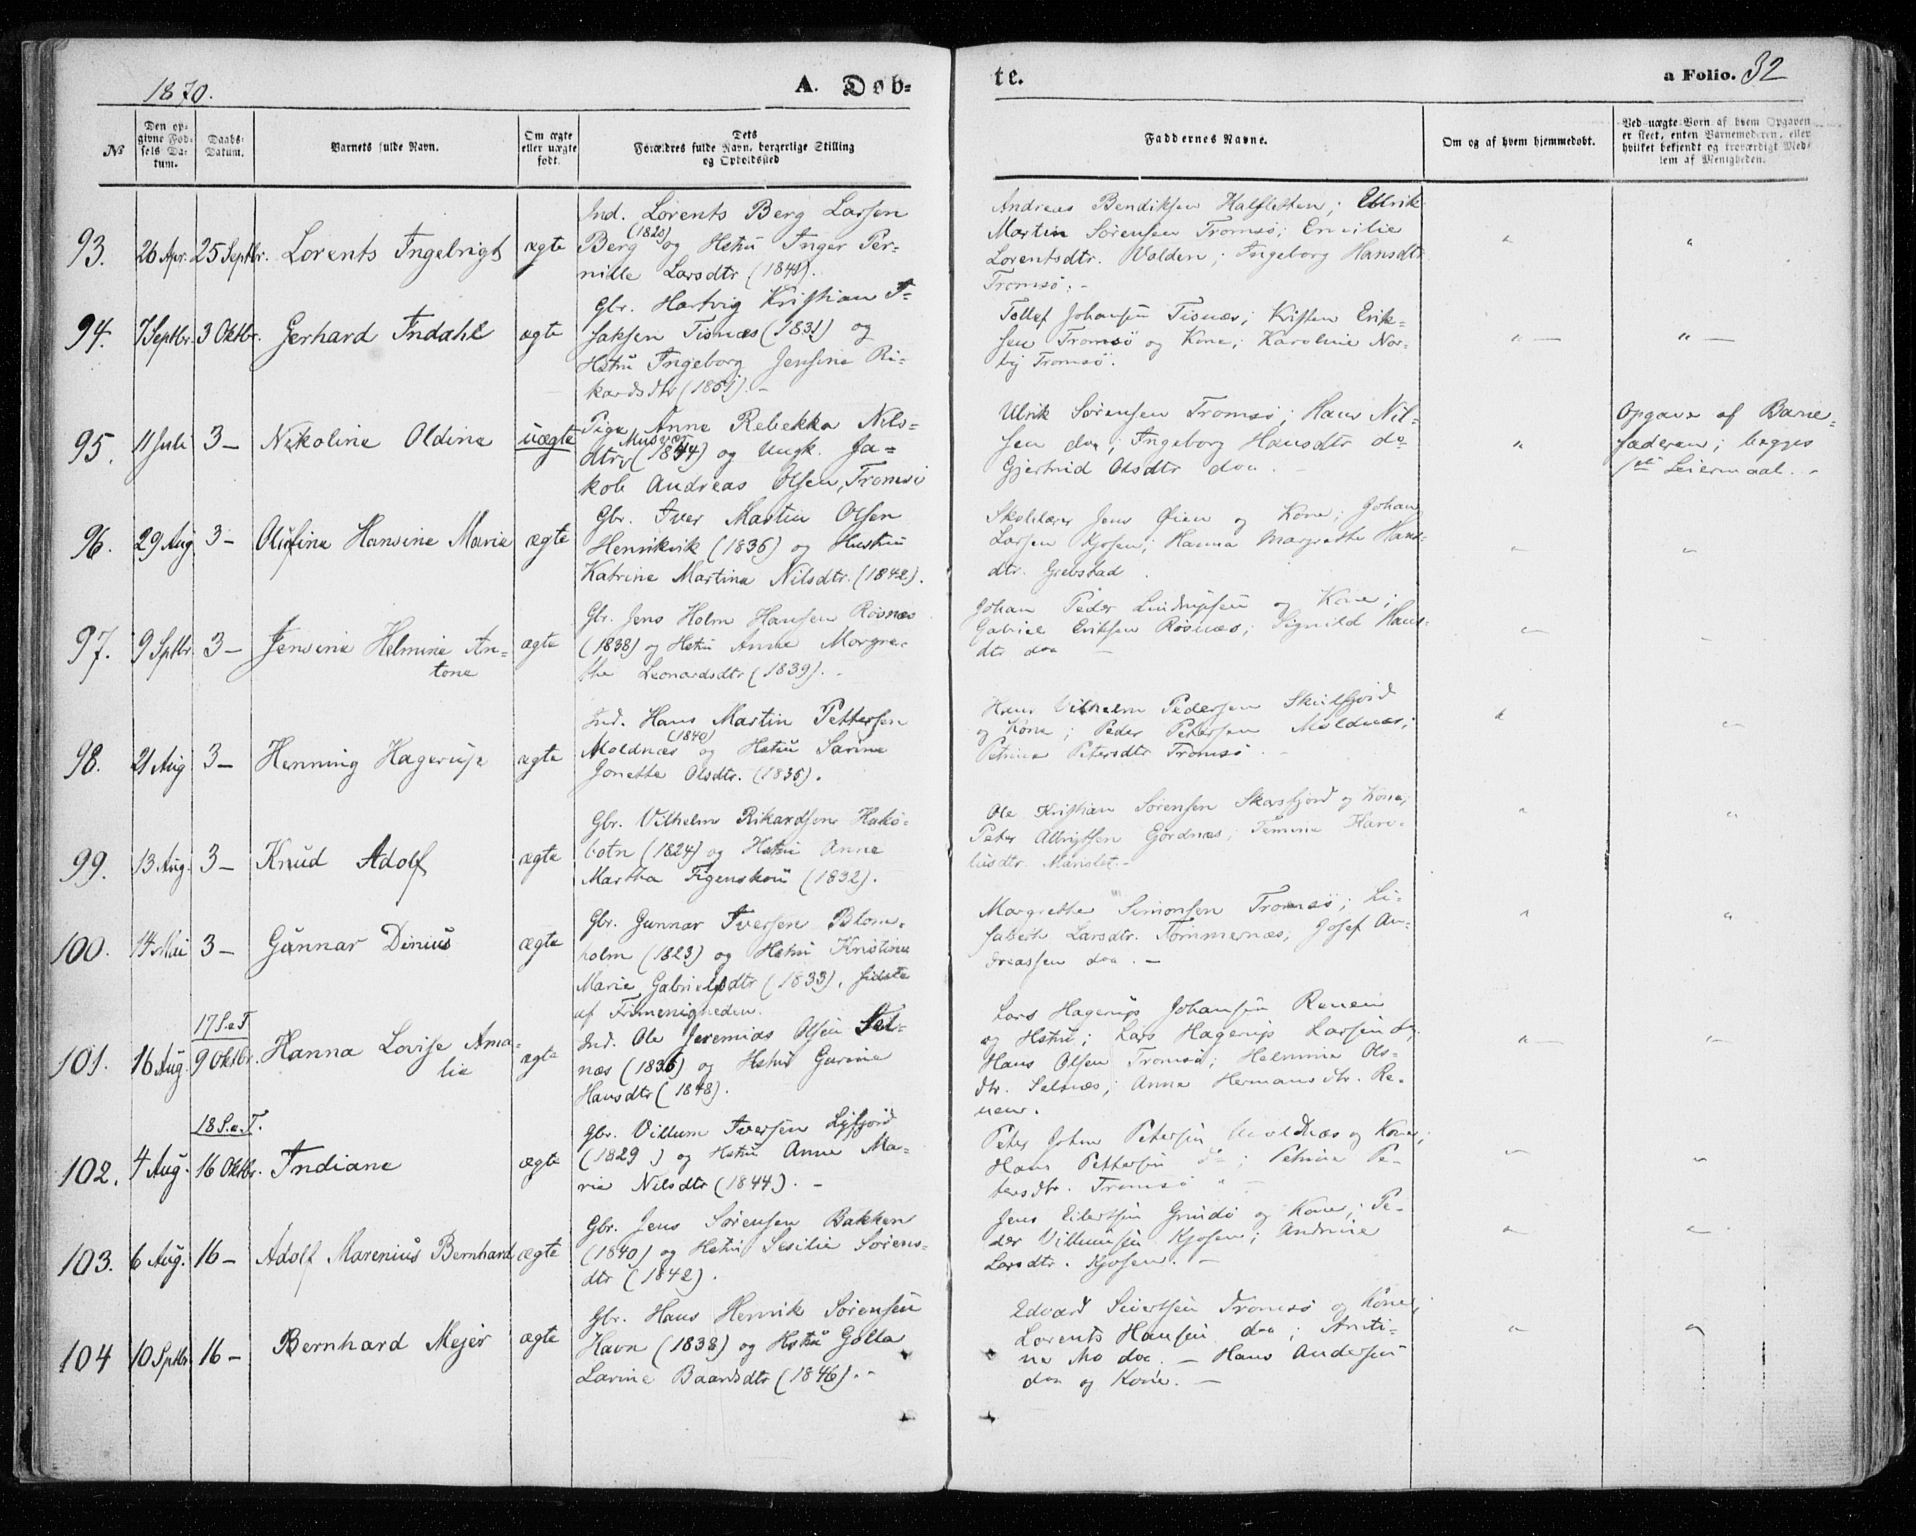 1870.
A. Døb-
te.
a Folio. 32
No
Den op-
givne Fød-
sels Da-
tum.
Daabs-
Datum.
Barnets fulde Navn.
Om ægte
eller uægte
født.
Dets
Forældres fulde Navn, borgerlige Stilling
og Opholdssted
Faddernes Navne.
Om og af hvem hjemmedøbt.
Ved uægte Børn af hvem Opgaven
er skeet, enten Barnemoderen, eller
hvilket bekjendt og troværdigt Med-
lem af Menigheden.
93. 26 Apr. 25 Septbr. Lorents Ingebrigt ægte
Ind. Lorents Berg Larsen
Berg (1820) og Hstru Inger Per-
nille Larsdtr
Andreas Bendiksen Halsletten; Ulrik
Martin Sørensen Tromsø; Emilie
Lorentsdtr. Valden; Ingeborg Hansdtr
Tromsø.-
94. 7 Septbr. 3 Oktbr. Gerhard Indahl ægte
Gbr. Hartvig Kristian I-
saksen Tisnæs (1831) og
Hstru Ingeborg Jensine Ri-
kardsdtr
Tollef Johansen Tisnæs; Kristen Erik-
sen Tromsø og Kone; Karoline Nor-
by Tromsø.
95. 11 Juli 3 - Nikoline Oldine uægte
Pige Anne Rebekka Nils-
dtr, Musvær (1844) og Ungk. Ja-
kob Andreas Olsen, Tromsø
Ulrik Sørensen Tromsø; Hans Nil-
sen doa; Ingeborg Hansdtr do
Gjertrud Olsdtr doa. -
Opgave af Barne-
faderen; begges
1ste Leiermaal. -
96. 29 Aug 3 - Olufine Hansine Marie ægte
Gbr. Iver Martin Olsen
Henrikvik (1836) og Hustru
Katrine Martina Nilsdtr. (1842).
Skolelærer Jens Øien og Kone; Johan
Larsen Kjosen; Hanna Margrethe Hans-
dtr. Grebstad.
97. 9 Sptbr. 3 - Jensine Helmine An-
tone ægte
Gbr. Jens Holm Hansen Røsnæs
(1838) og Hstru Anne Margre-
the Leonardsdtr (1839). -
Johan Peder Lindrupsen og Kone;
Gabriel Eriksen Røsnæs; Signild Hans-
dtr doa -
98. 21 Aug 3 - Henning Hagerup ægte
Ind. Hans Martin Pettersen
Moldnæs (1840) og Hstru Sarine
Jonetta Olsdtr. (1835).
Hans Vilhelm Pedersen Skulsfjord
og Kone; Peder Petersen Moldnæs;
Petrine Petersdtr Tromsø. -
99. 13 Aug. 3 - Knud Adolf ægte
Gbr. Vilhelm Rikardsen Hakø-
botn (1824) og Hstru Anne
Martha Figenskou (1832).
Ole Kristian Sørensen Skarsfjord og Kone;
Peter Albrigtsen Gjordnæs;
100. 14 Mai 3 - Gunnar Dinius ægte
Gbr. Gunnar Iversen Blom-
holm (1823) og Hstru Kristine
Marie Gabrielsdtr (1833), sidste
af Frimenigheden.
Margrethe Simonsen Tromsø; Li-
sabeth Larsdtr. Tømmernæs; Josef An-
dreassen doa. -
17 S.e.T.
101. 16 Aug. 9 Oktbr. Hanna Lovise Ama-
lie ægte
Ind. Ole Jeremias Olsen Sel-
næs (1836) og Hstru Gurine
Hansdtr (1848).
Lars Hagerup Johansen Renen
og Hstru; Lars Hagerup Larsen do;
Hans Olsen Tromsø; Helmine Ols-
dtr. Selnæs; Anna Hermansdtr. Re-
nen.
18 S.e.T.
102. 4 Aug. 16 Oktbr. Indiane ægte
Gbr. Villum Iversen Lyfjord
(1829) og Hstru Anne Ma-
rie Nilsdtr (1844). -
Peter Johan Petersen Moldnæs og Kone;
Hans Pettersen do; Petrine Pe-
tersdtr. Tromsø -
103. 6 Aug. 16 - Adolf Marenius Bernhard ægte
Gbr. Jens Sørensen Bakken
(1840) og Hstru Sesilie Sørens-
dtr (1842).
Jens Eilertsen Grindø og Kone; Pe-
der Villumsen Kjosen; Andrine
Larsdtr. Kjosen. -
104 10 Sptbr 16 - Bernhard Mejer ægte
Gbr. Hans Henrik Sørensen
Havn (1838) og Hstru Golla
Lavine Baardsdtr (1846). -
Edvard Sivertsen Tromsø og Kone;
Lorents Hansen doa; Anti-
na Mo doa. - Hans Andersen
doa og Kone. -